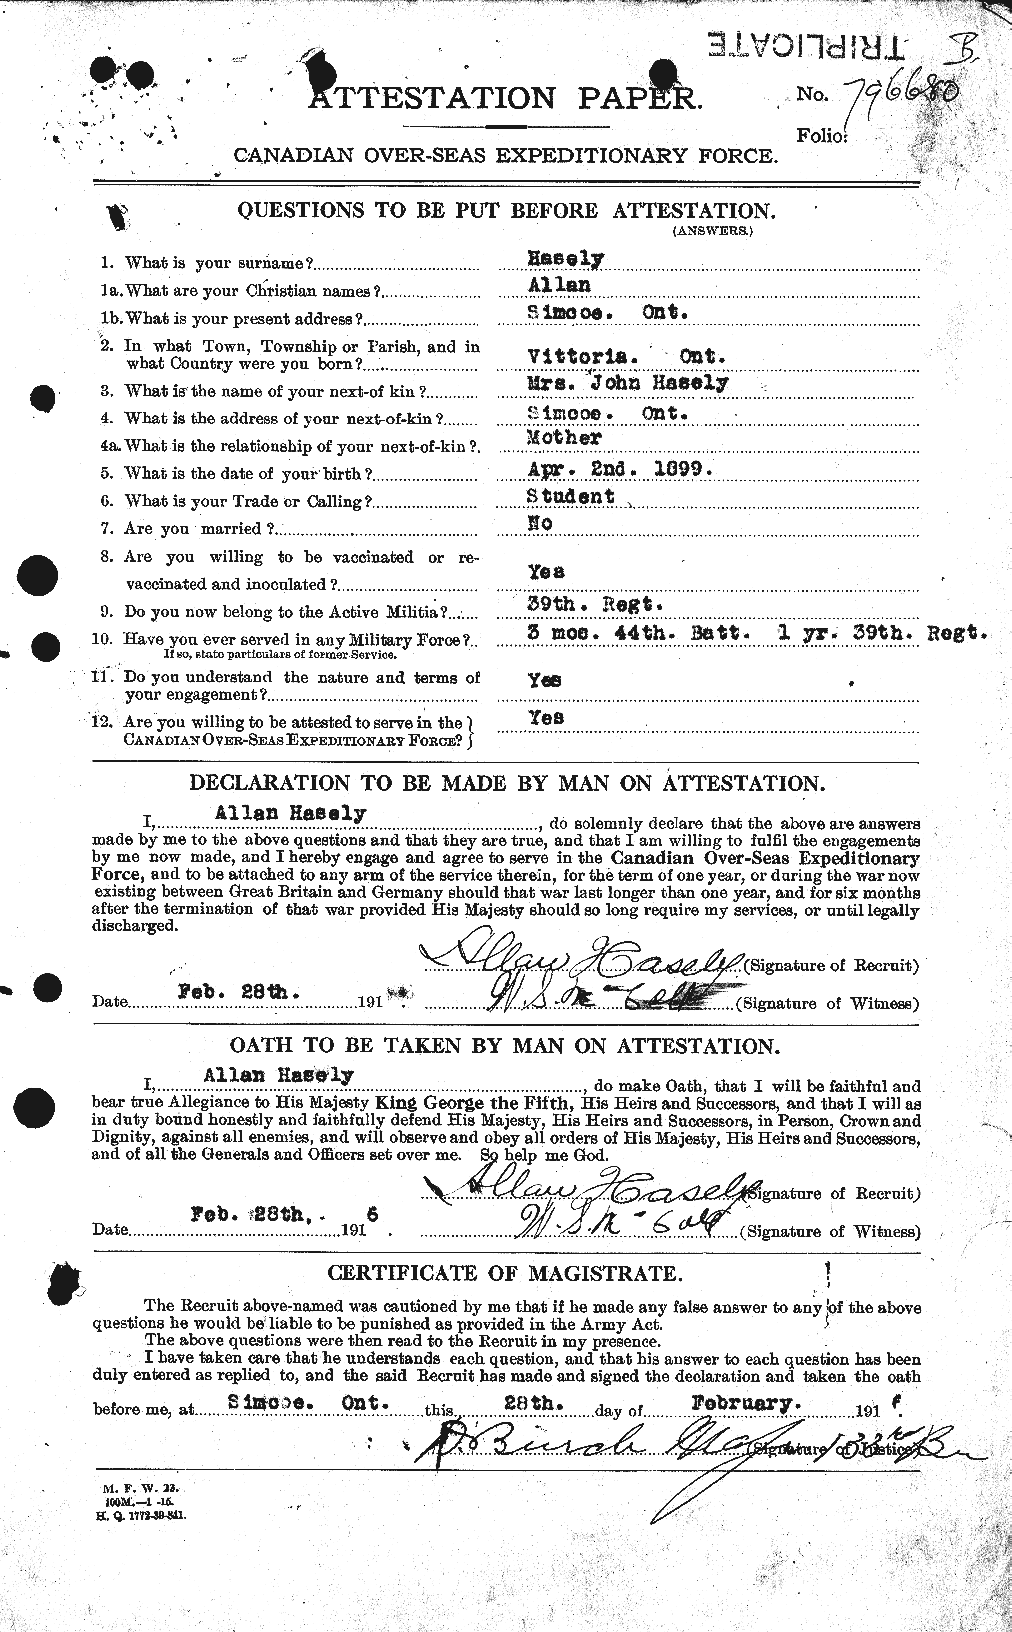 TRIPLICATE
B.
ATTESTATION PAPER.
No. 796680
Folio.
CANADIAN OVER-SEAS EXPEDITIONARY FORCE.
QUESTIONS TO BE PUT BEFORE ATTESTATION.
(ANSWERS.)
1. What is your surname? Hasely
1a. What are your Christian names? Allan
1b. What is your present address? Simcoe. Ont.
2. In what Town, Township or Parish, and in
what Country were you born? Vittoria. Ont.
3. What is the name of your next-of kin? Mrs. John Hasely
4. What is the address of your next-of-kin? Simcoe. Ont.
4a. What is the relationship of your next-of-kin? Mother
5. What is the date of your birth? Apr. 2nd. 1899.
6. What is your Trade or Calling? Student
7. Are you married? No
8. Are you willing to be vaccinated or re-
vaccinated and inoculated? Yes
9. Do you now belong to the Active Militia? 39th. Regt.
10. Have you ever served in any Military Force? 3 mos. 44th. Batt. 1 yr. 39th. Regt.
If so, state particulars of former Service.
11. Do you understand the nature and terms of
your engagement? Yes
12. Are you willing to be attested to serve in the
CANADIAN OVER-SEAS EXPEDITIONARY FORCE? Yes
DECLARATION TO BE MADE BY MAN ON ATTESTATION.
I, Allan Hasely, do solemnly declare that the above are answers
made by me to the above questions and that they are true, and that I am willing to fulfil the engagements
by me now made, and I hereby engage and agree to serve in the Canadian Over-Seas Expeditionary
Force, and to be attached to any arm of the service therein, for the term of one year, or during the war now
existing between Great Britain and Germany should that war last longer than one year, and for six months
after the termination of that war provided His Majesty should so long require my services, or until legally
discharged.
Allan Hasely (Signature of Recruit)
Date Feb. 28th. 191 W. S. Mc (Signature of Witness)
OATH TO BE TAKEN BY MAN ON ATTESTATION.
I, Allan Hasely, do make Oath, that I will be faithful and
bear true Allegiance to His Majesty King George the Fifth, His Heirs and Successors, and that I will as
in duty bound honestly and faithfully defend His Majesty, His Heirs and Successors, in Person, Crown and
Dignity, against all enemies, and will observe and obey all orders of His Majesty, His Heirs and Successors,
and of all the Generals and Officers set over me. So help me God.
Allan Hasely (Signature of Recruit)
Date Feb. 28th. 1916. W. S. Mc (Signature of Witness)
CERTIFICATE OF MAGISTRATE.
The Recruit above-named was cautioned by me that if he made any false answer to any of the above
questions he would be liable to be punished as provided in the Army Act.
The above questions were then read to the Recruit in my presence.
I have taken care that he understands each question, and that his answer to each question has been
duly entered as replied to, and the said Recruit has made and signed the declaration and taken the oath
before me, at Simcoe. Ont. this 28th. day of February. 191
Major 133rd Bn (Signature of Justice)
M. F. W. 23.
100M.—1 -16.
H. Q. 1772-39-841.